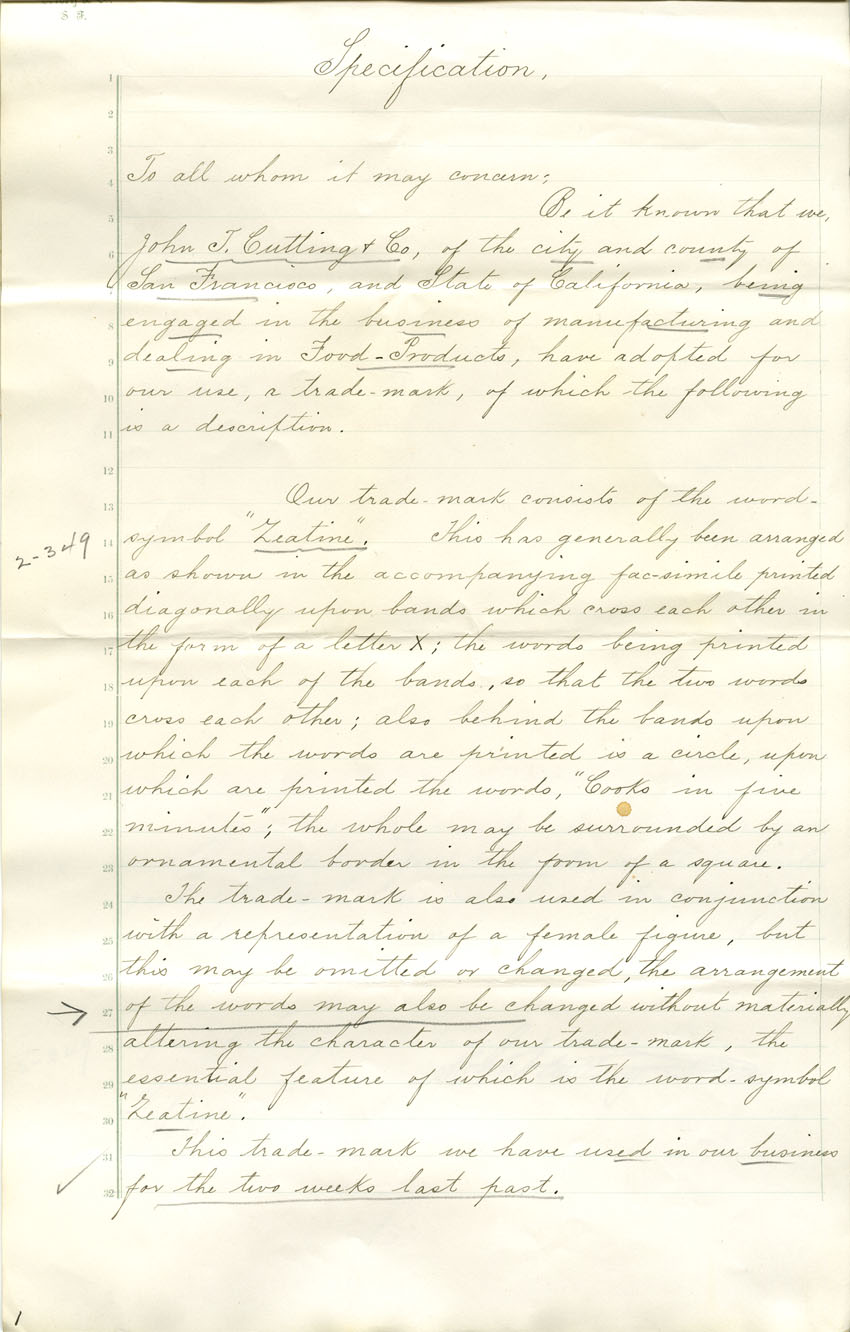 S F.
Specification,
1
2
3
4 To all whom it may concern;
5 Be it known that we,
6 John T. Cutting & Co, of the city and county of
7 San Francisco, and State of California, being
8 engaged in the business of manufacturing and
9 dealing in Food-Products, have adopted for
10 our use, a trade-mark, of which the following
11 is a description.
12
13 Our trade-mark consists of the word-
2-349
14 symbol "Zeatine". This has generally been arranged
15 as shown in the accompanying fac-simile printed
16 diagonally upon bands which cross each other in
17 the form of a letter X; the words being printed
18 upon each of the bands, so that the two words
19 cross each other; also behind the bands upon
20 which the words are printed is a circle, upon
21 which are printed the words, "Cooks in five
22 minutes"; the whole may be surrounded by an
23 ornamental border in the form of a square.
24 The trade-mark is also used in conjunction
25 with a representation of a female figure, but
26 this may be omitted or changed, the arrangement
27 of the words may also be changed without materially
28 altering the character of our trade-mark, the
29 essential feature of which is the word-symbol
30 "Zeatine".
31 This trade-mark we have used in our business
32 for the two weeks last past.
1